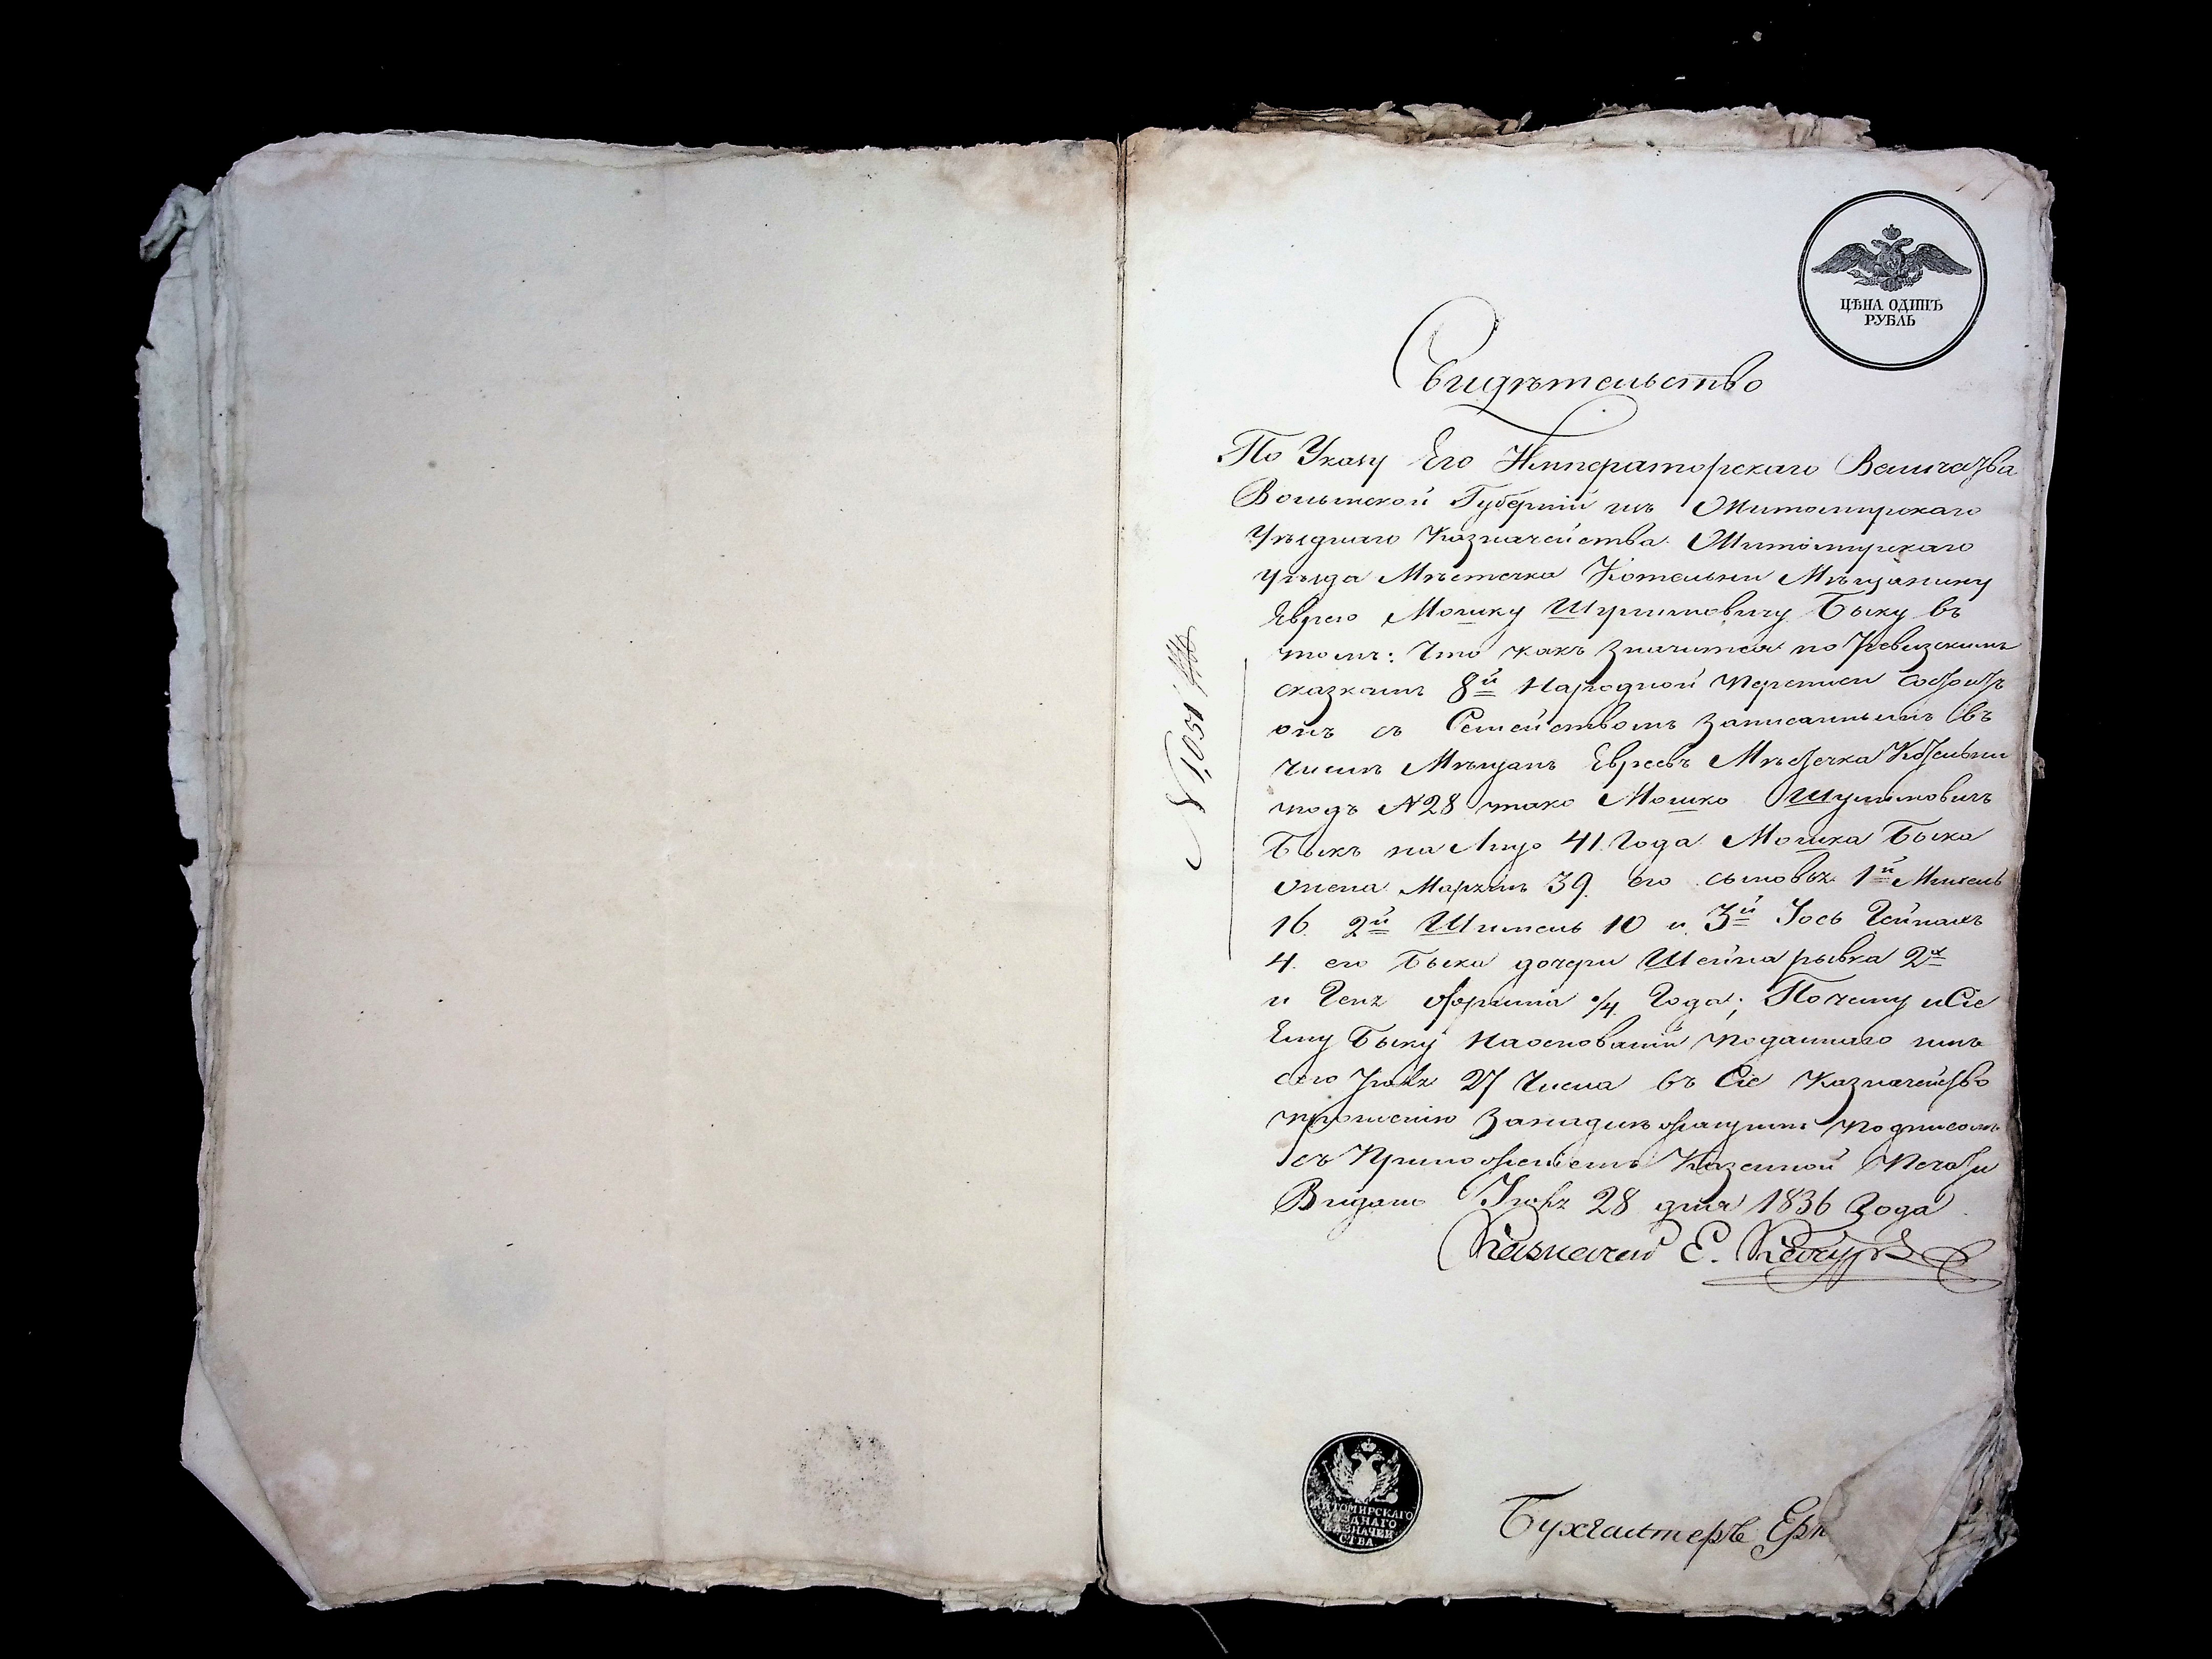 ЦѢНА ОДИНЪ
РУБЛЬ
Свидѣтельство
По Указу Его Императорскаго Величества
Волынской Губерніи изъ Житомирскаго
Уѣзднаго Казначейства Житомирскаго
уѣзда Мѣстечка Котельни Мѣщанину
Еврею Мошку Шулимовичу Быку въ
томъ: Что какъ Значится по Ревизскимъ
сказкамъ 8й Народной Переписи Состоитъ
онъ съ Семействомъ Записаннымъ въ
числѣ Мѣщанъ Евреевъ Мѣстечка Котельни
подъ №28 тако Мошко Шулимовичъ
Быкъ на Лицо 41. Года Мошка Быка
жена 39. его сыновья 1й Михель
16. 2й Шмиель 10 и 3й Іось
4. его Быка дочери Шейна рывка 2х
и Геня 3/4 Года; Почему и Сіе
Ему Быку На основаніи поданнаго имъ
сего Іюля 27 Числа въ Сіе Казначейство
прошенію За надлежащимъ подписомъ
съ Приложеніемъ Казенной Печати
Видано Іюля 28 дня 1836 Года
Казначей Е.
№ 1,051
ЖИТОМИРСКАГО
УѢЗДНАГО
КАЗНАЧЕЙ
СТВА
Бухгалтеръ